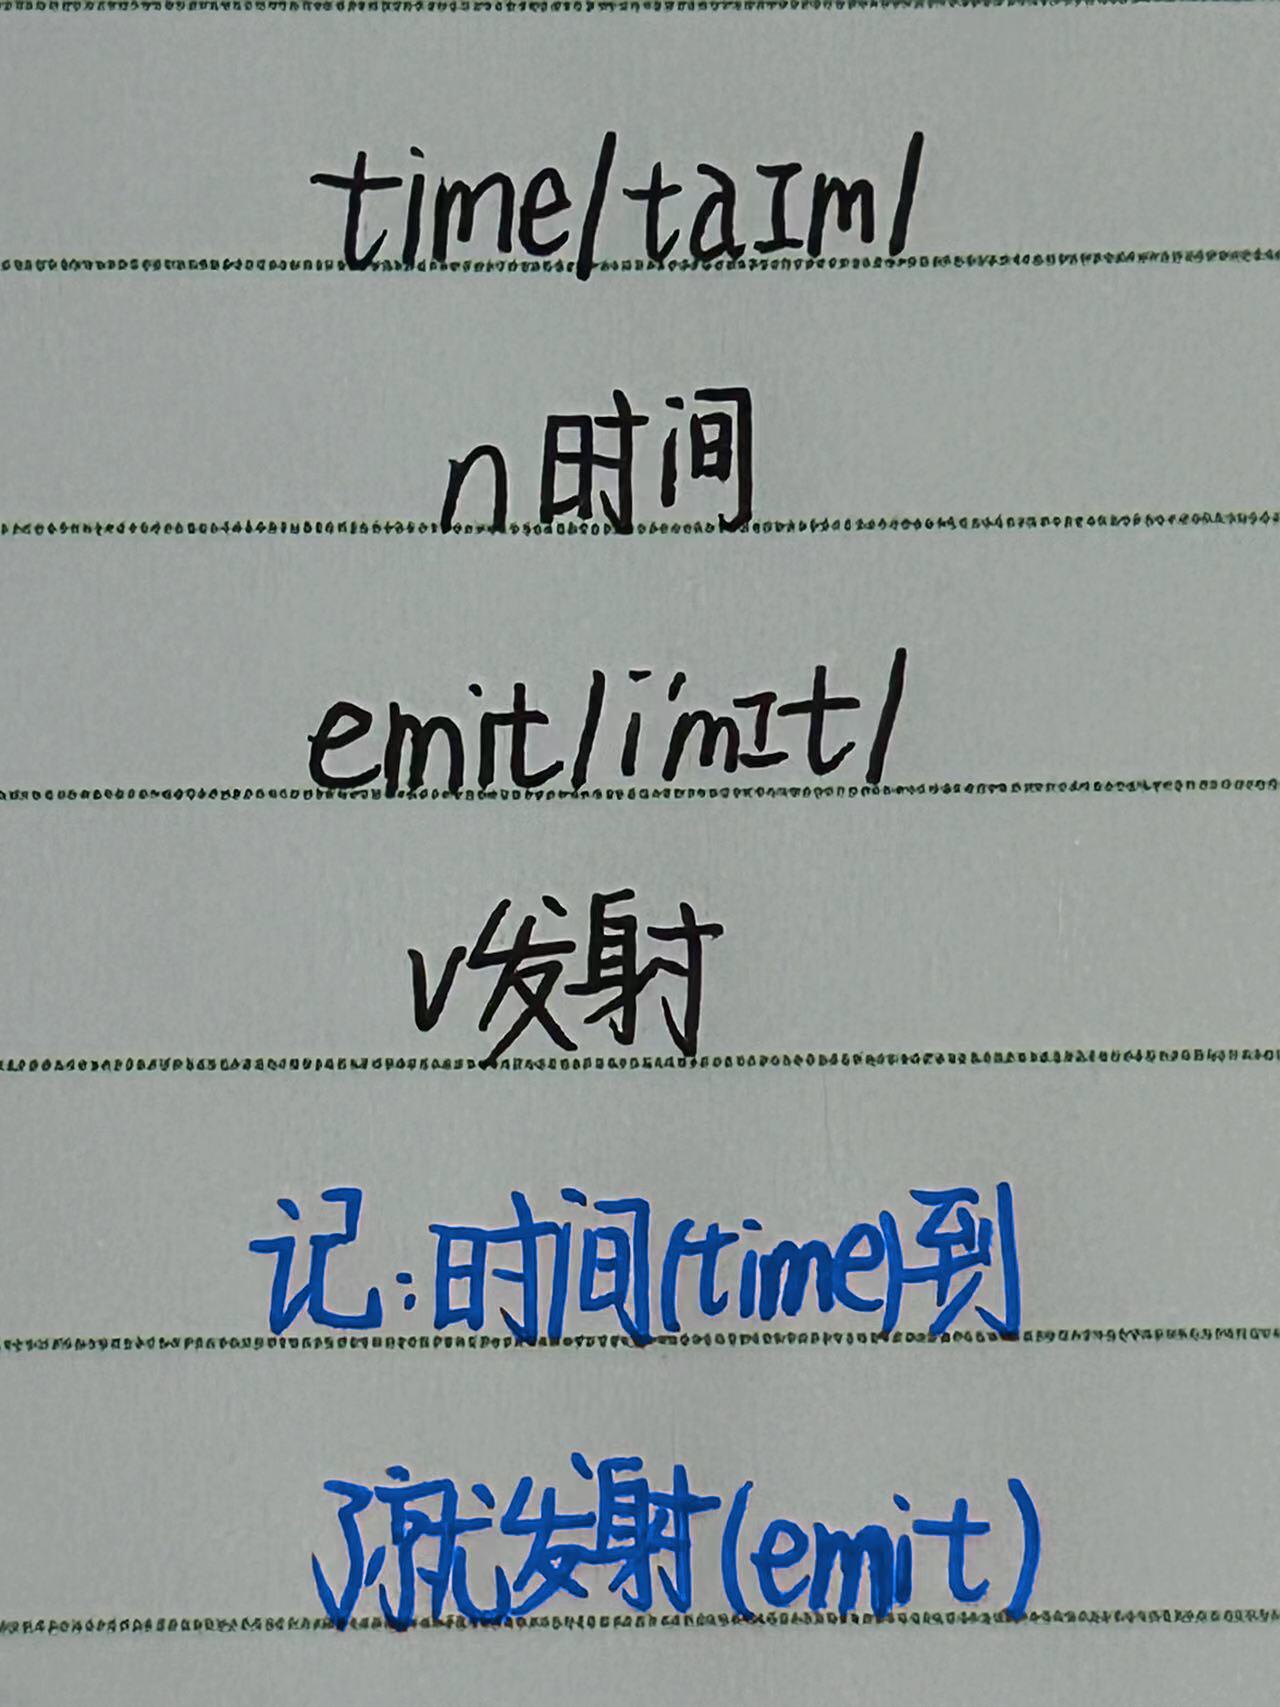 time/taɪm/
n时间
emit/i'mɪt/
v发射
记:时间(time)到
了就发射(emit)